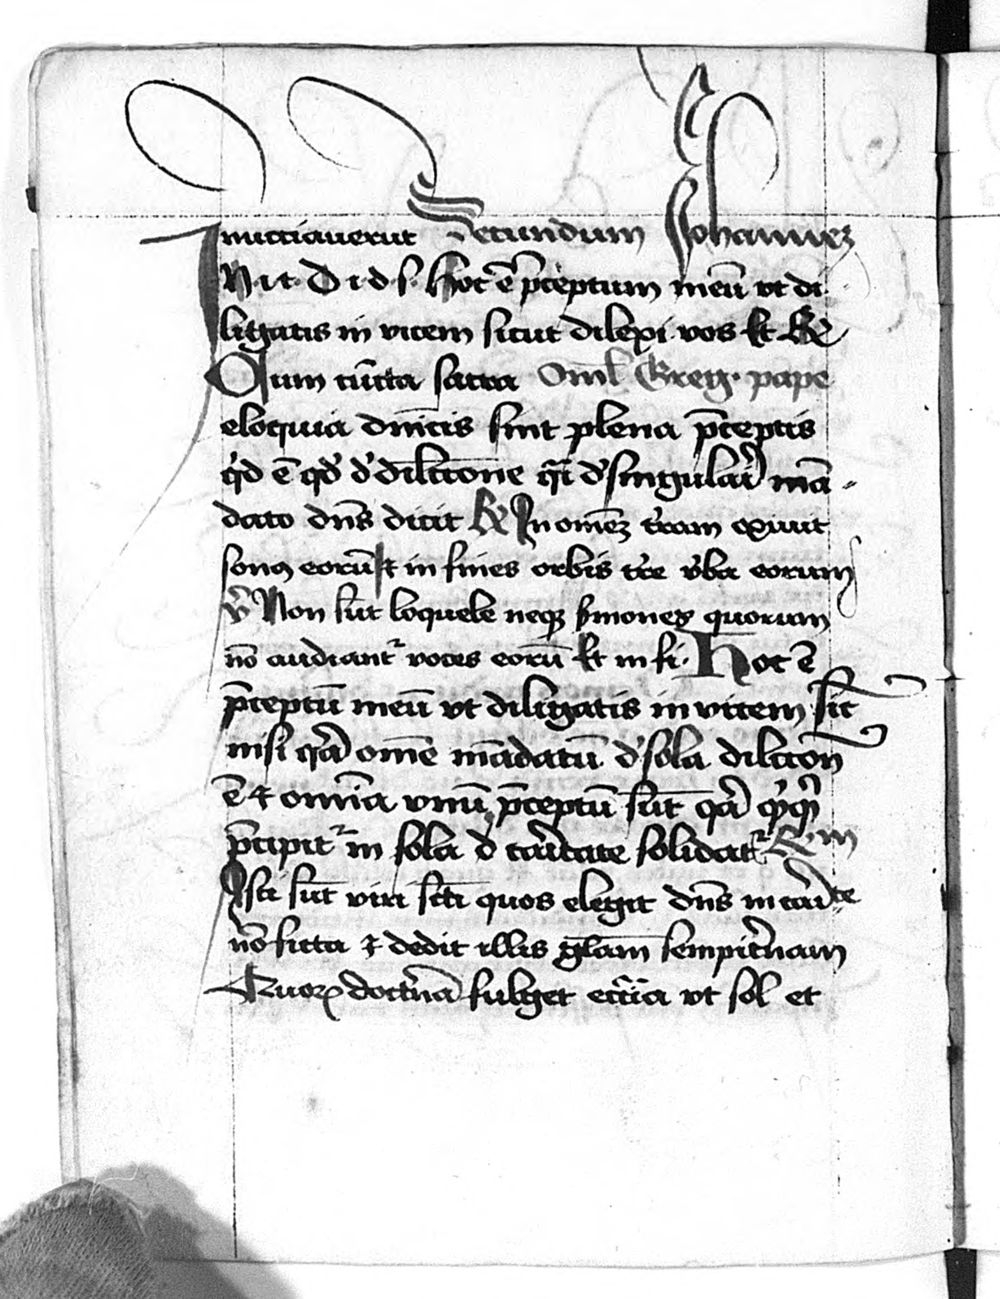 nuctiauerut Secundum Johannez
N i t D i d s. Hoc ē p̄ceptum meū vt di
ligatis in vicem sicut dilexi vos Et Re
Cum cūcta sacra Oml̄ Greg. pape
eloquia dn̄icis sint plena p̄ceptis
qd ē qd d' dilc̄cione q̄i d' singulari mā
dato dn̄s dicit R In om̄ez t'ram exiuit
sonꝰ eorū Et in fines orbis t're v'ba eorum
V Non sūt loquele neqꝫ s'mones quorum
nō audiant' voces eorū Et in fi. Hoc ē
p̄ceptū meū vt diligatis in vicem sic
nisi q̄a om̄e mādatū d' sola dilc̄cion
ē ⁊ om̄ia vnū p̄ceptū sūt q̄a qͥqͥd
p̄cipit' in sola caritate solidat' Rm
Isti sūt viri sc̄ti quos elegit dn̄s in caritate
nō ficta ⁊ dedit illis gl̄am sempit'nam
Quorꝝ doct'na fulget ecc̄ia vt sol et